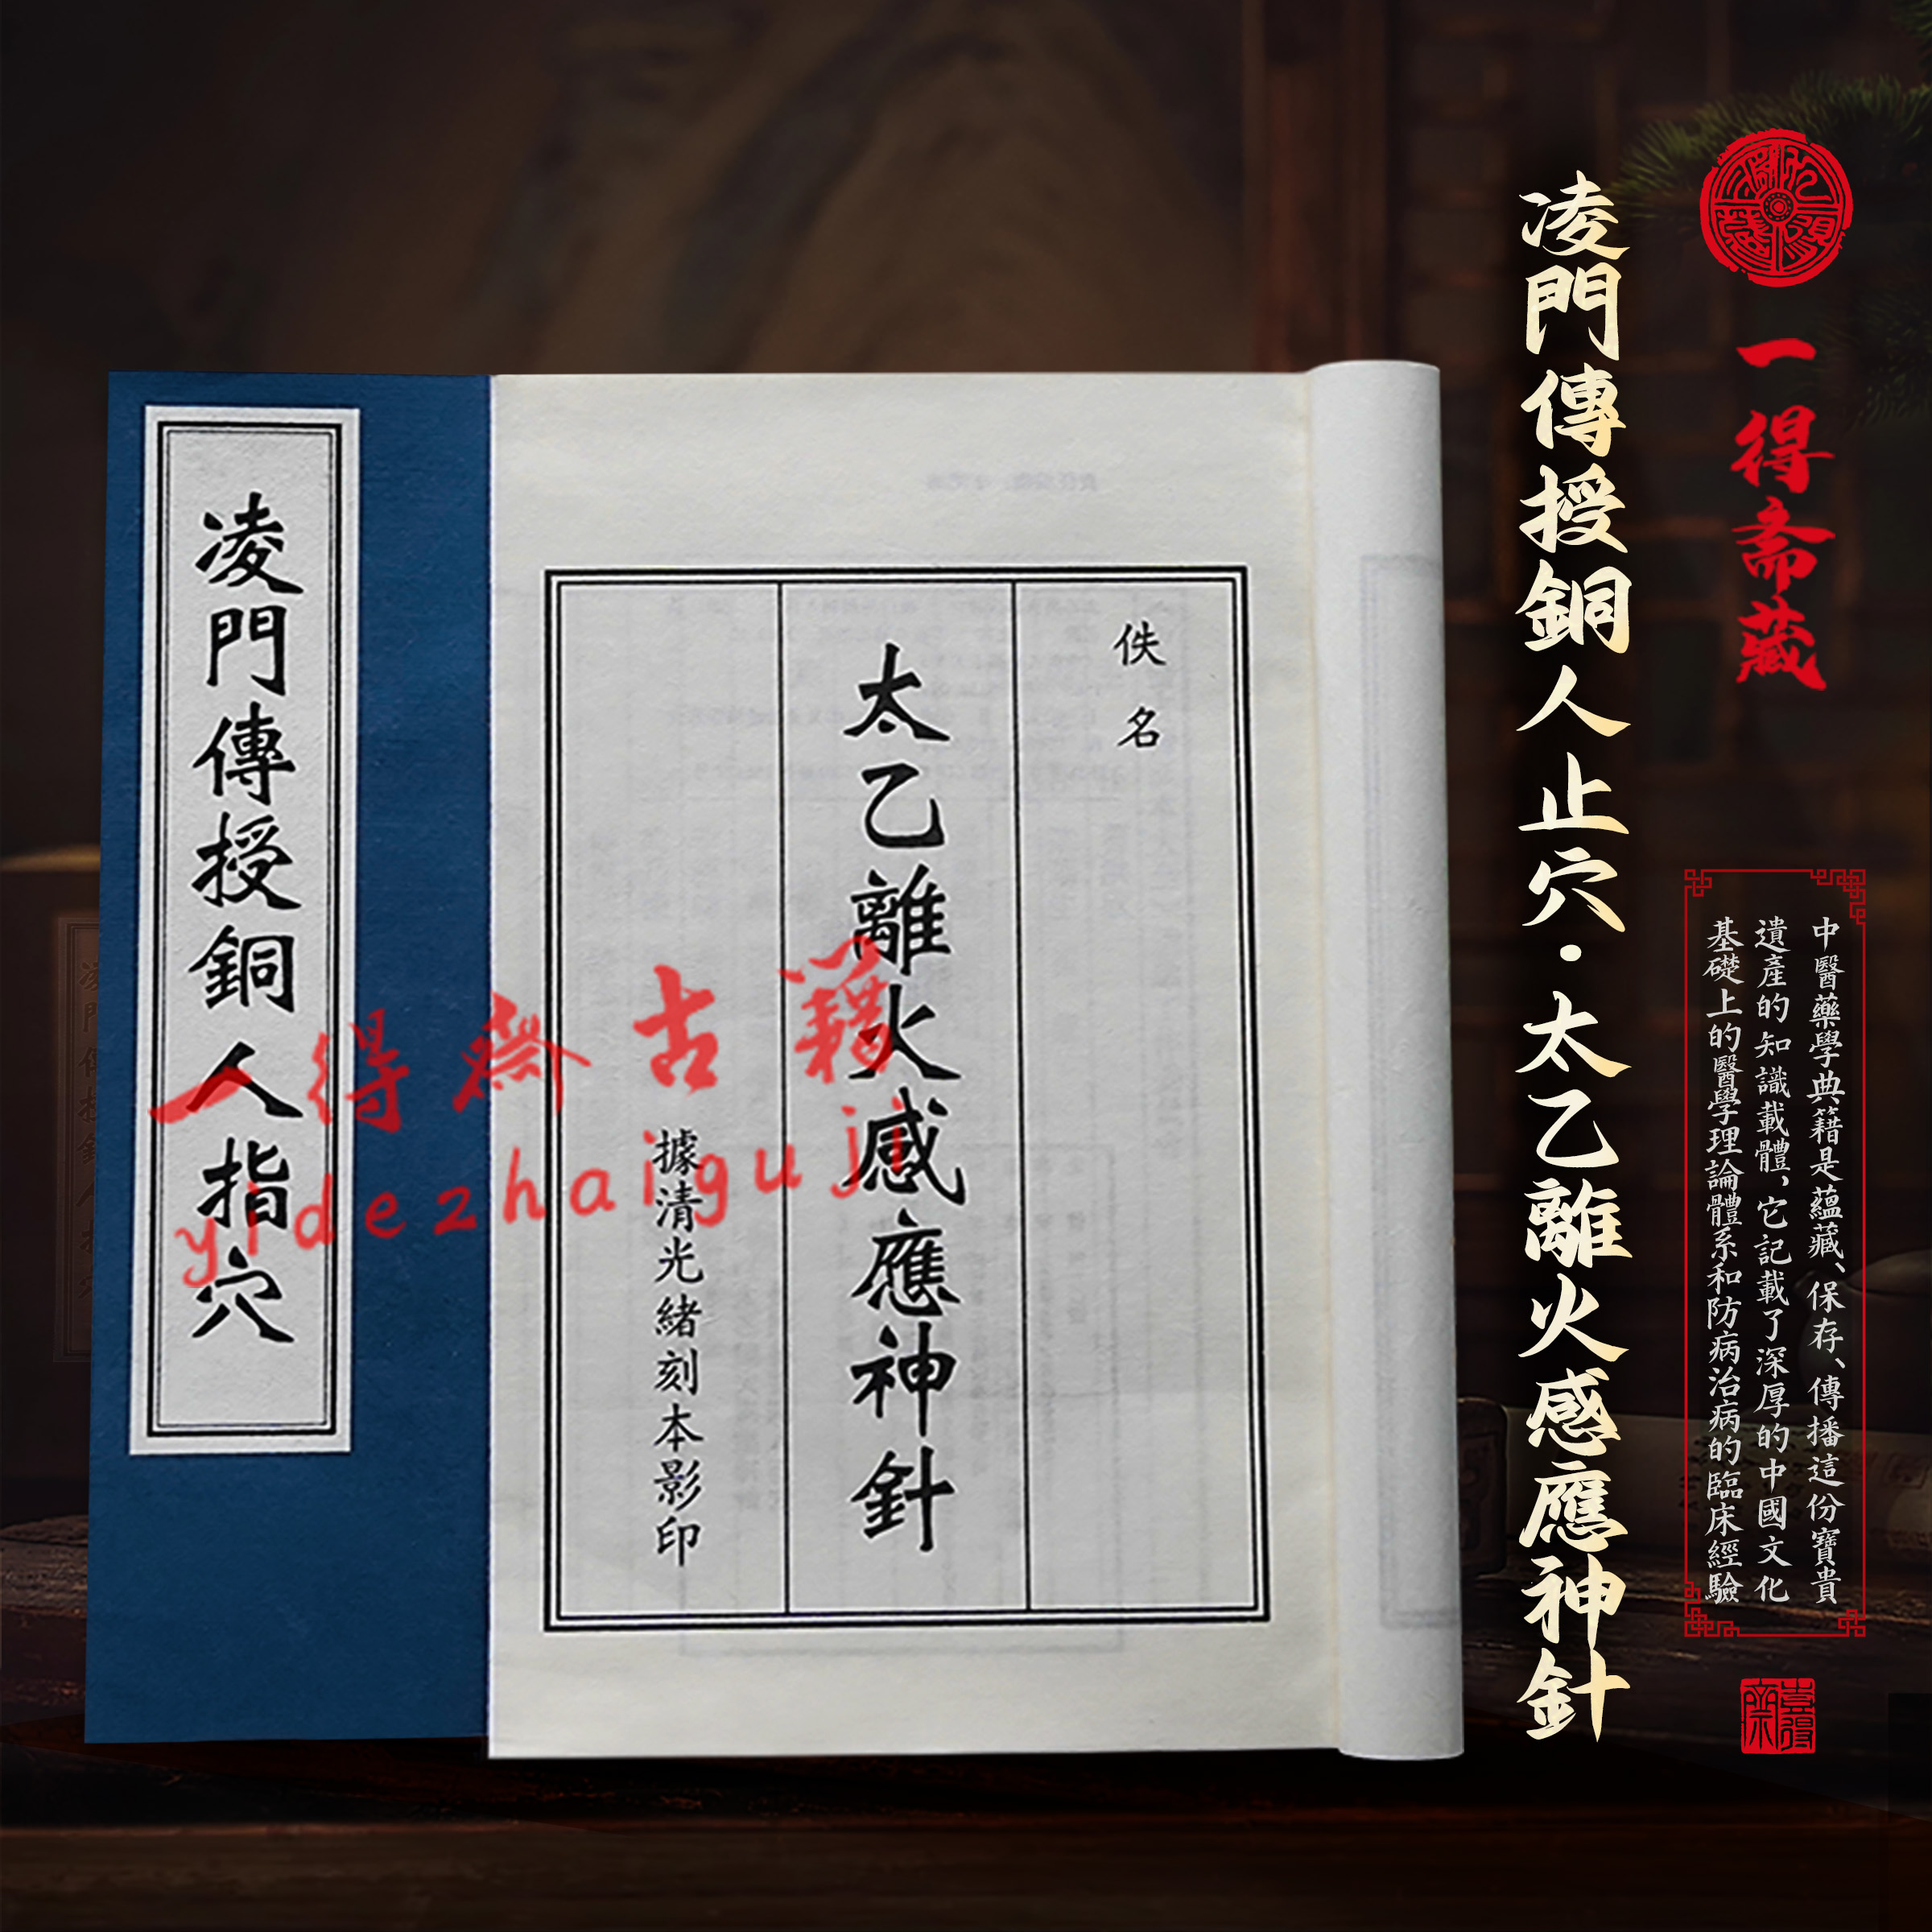 一得斋藏
凌門傳授銅人止穴·太乙離火感應神針
中醫藥學典籍是蘊藏、保存、傳播這份寶貴
遺產的知識載體，它記載了深厚的中國文化
基礎上的醫學理論體系和防病治病的臨床經驗
佚名
太乙離火感應神針
據清光緒刻本影印
凌門傳授銅人指穴
一得齋古籍
yidezhaiguji